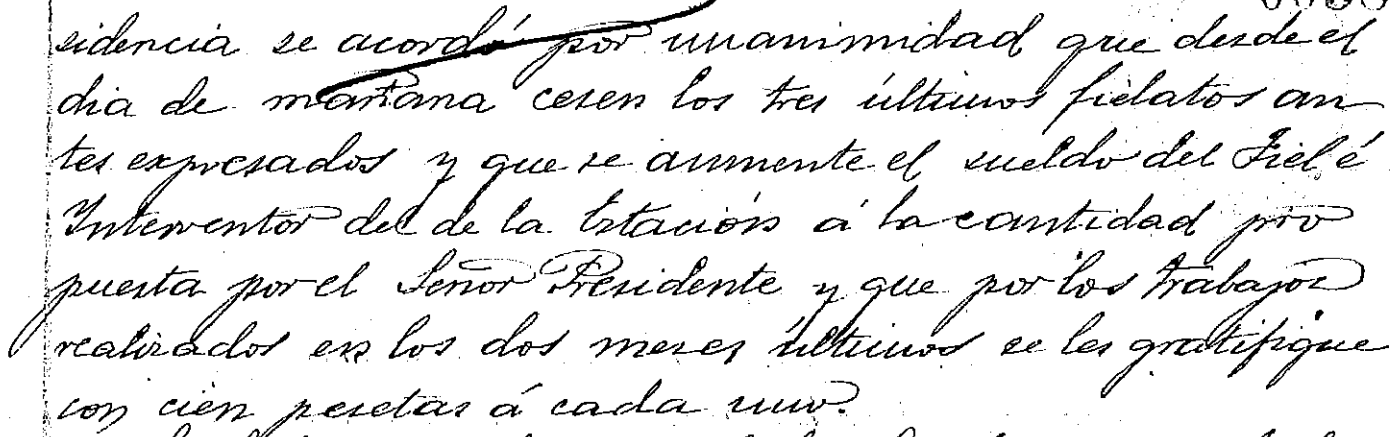 sidencia se acordó por unanimidad que desde el
dia de mañana cesen los tres últimos fielatos an
tes expresados y que se aumente el sueldo del Fiel é
Interventor del de la Estación á la cantidad pro
puesta por el Señor Presidente y que por los trabajos
realizados en los dos meses últimos se les gratifique
con cien pesetas á cada uno.